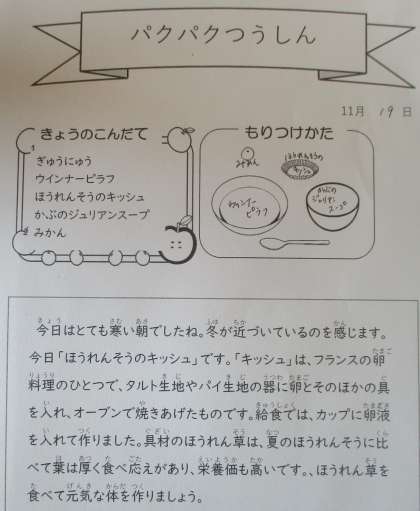 パクパクつうしん
11月 19 日
きょうのこんだて
ぎゅうにゅう
ウインナーピラフ
ほうれんそうのキッシュ
かぶのジュリアンスープ
みかん
もりつけかた
みかん
ほうれんそうの
キッシュ
ウィンナー
ピラフ
かぶの
ジュリアン
スープ
今日はとても寒い朝でしたね。冬が近づいているのを感じます。
今日「ほうれんそうのキッシュ」です。「キッシュ」は、フランスの卵
料理のひとつで、タルト生地やパイ生地の器に卵とそのほかの具
を入れ、オーブンで焼きあげたものです。給食では、カップに卵液
を入れて作りました。具材のほうれん草は、夏のほうれんそうに比
べて葉は厚く食べ応えがあり、栄養価も高いです。、ほうれん草を
食べて元気な体を作りましょう。